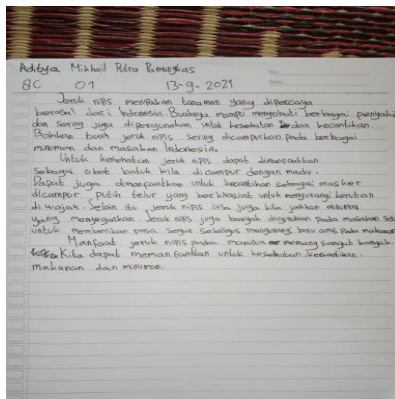 Aditya Mikhail Putra Pamungkas
8C 01 13-9-2021
Jeruk nipis merupakan tanaman yang dipercaya
berasal dari Indonesia. Buahnya mampu mengobati berbagai penyaki
dan sering juga dipergunakan untuk kesehatan dan kecantikan.
Bahkan buah jeruk nipis sering dicampurkan pada berbagai
minuman dan masakan Indonesia.
Untuk kesehatan jeruk nipis dapat dimanfaatkan
sebagai obat batuk bila dicampur dengan madu.
Dapat juga dimanfaatkan untuk kecantikan sebagai masker
dicampur putih telur yang berkhasiat untuk mengurangi kerutan
di wajah. Selain jeruk nipis bisa juga kita jadikan minuman
yang menyegarkan jeruk nipis juga banyak digunakan pada masakan
untuk memberikan rasa segar sekaligus mengurangi bau amis pada makanan
Manfaat jeruk nipis pada manusia memang sangat banyak.
Kita dapat memanfaatkan untuk kesehatan kecantikan.
makanan dan minuman.